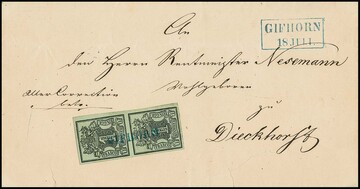 An
GIFHORN
18 JULI
den Herrn Rentmeister Nesemann
Wohlgeboren
Alter Correction
zu
Dieckhorst
GIFHORN